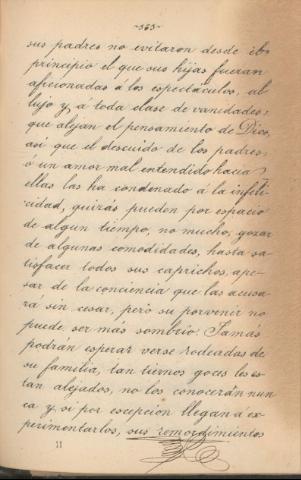 -565-
sus padres no evitaron desde el
principio el que sus hijas fueran
aficionadas á los espectáculos, al
lujo y, á toda clase de vanidades,
que alejan el pensamiento de Dios,
así que el descuido de los padres,
ó un amor mal entendido hacia
ellas las ha condenado á la infeli-
cidad, quizás pueden por espacio
de algun tiempo, no mucho, gozar
de algunas comodidades, hasta sa-
tisfacer todos sus caprichos, ape-
sar de la conciencia que las acusa-
rá sin cesar, pero su porvenir no
puede ser más sombrio. Jamás
podrán esperar verse rodeadas de
su familia, tan tiernos goces les es-
tan alejados, no los conocerán nun
ca y, si por escepcion llegan á ex-
perimentarlos, sus remordimientos
11